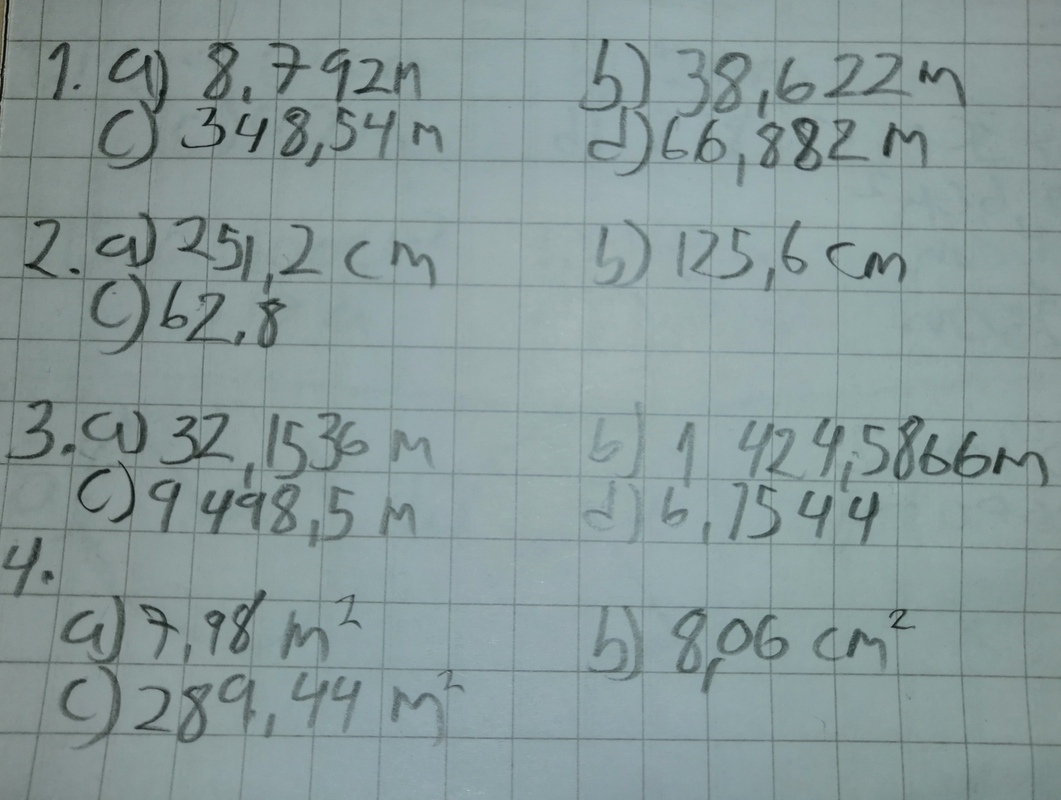 1. a) 8,792m b) 38,622m
c) 348,54m d) 66,882m
2. a) 251,2 cm b) 125,6 cm
c) 62,8
3. a) 32,1536 m b) 1 424,5866m
c) 9 498,5 m d) 6,1544
4.
a) 7,98 m² b) 8,06 cm²
c) 289,44 m²